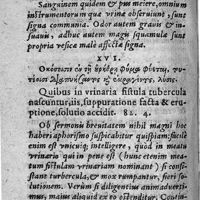 Sanguinem quidem & pus meiere, omnium
instrumentorum qua vrinæ obseruiunt, sunt
signa communia. Odor autem grauis & in-
suauis, adhuc autem magis squamula sunt
propria vesicæ male affectæ signa.
XVI.
Quibus in vrinaria fistula tubercula
nascuntur iis, suppuratione facta & eru-
ptione, solutio accidit. 82. 4.
Ob sermonis breuitatem nihil magni hoc
habere aphorismo suspicabitur quispiam: facile
enim est vnicuiq; intelligere, quod in meatu
vrinario qui in pene est (hunc etenim mea-
tum fistulam vrinariam nominant) si consi-
stant tubercula, & mox rumpantur, fieri so-
lutionem. Verùm si diligentius animaduerti-
mus, maius aliquid ex eo ostenditur. Contin-